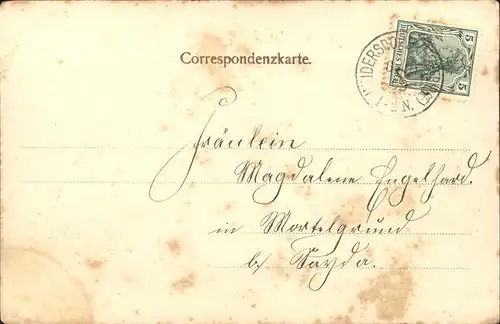 Correspondenzkarte.
5 DEUTSCHES REICH 5
Fräulein
Magdalene Engelhard.
in Mortelgrund
b/ Sayda.